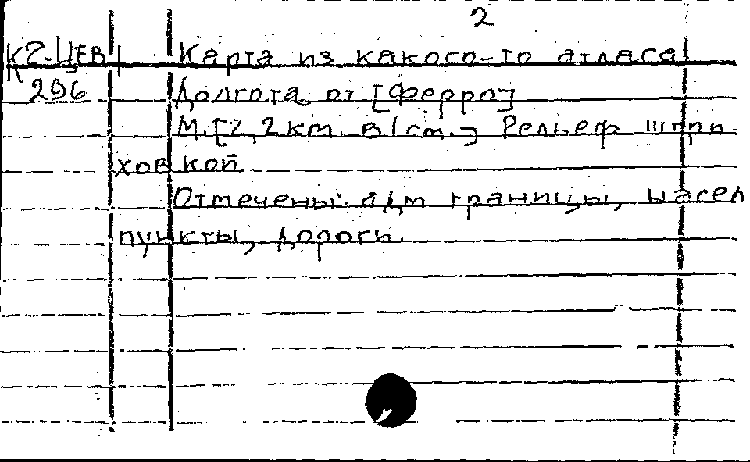 2
К2-Цев Карта из какого-то атласа
296 Долгота от [Ферро]
М.[2,2км в 1 см.] Рельеф штри
ховкой
Отмечены адм границы, насел
пункты, дороги